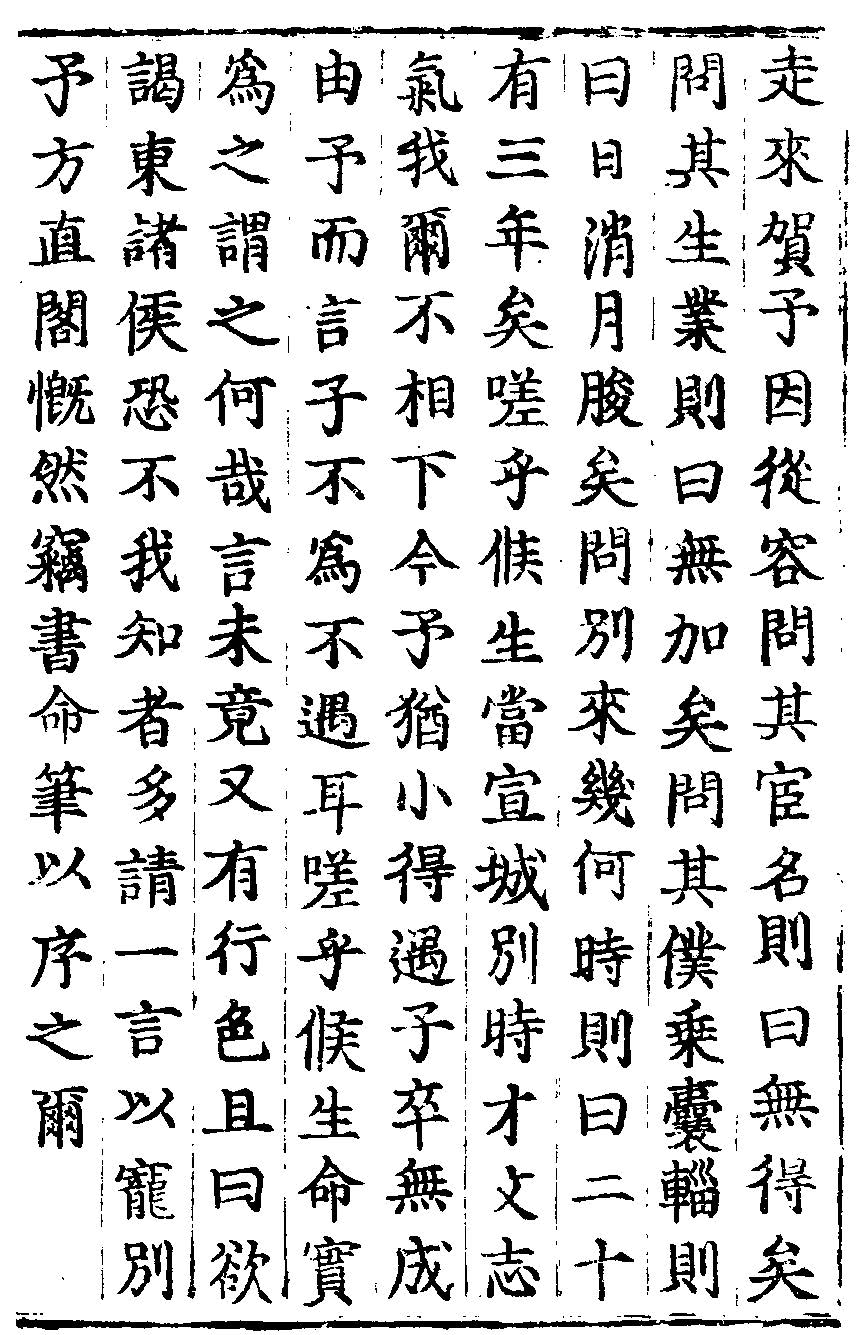 走來賀予因從容問其宦名則曰無得矣
問其生業則曰無加矣問其僕乗囊輜則
曰日消月朘矣問別來幾何時則曰二十
有三年矣嗟乎候生當宣城別時才文志
氣我爾不相下今予猶小得遇子卒無成
由予而言子不爲不遇耳嗟乎候生命實
爲之謂之何哉言未竟又有行色且曰欲
謁東諸侯恐不我知者多請一言以寵別
予方直閣慨然竊書命筆以序之爾